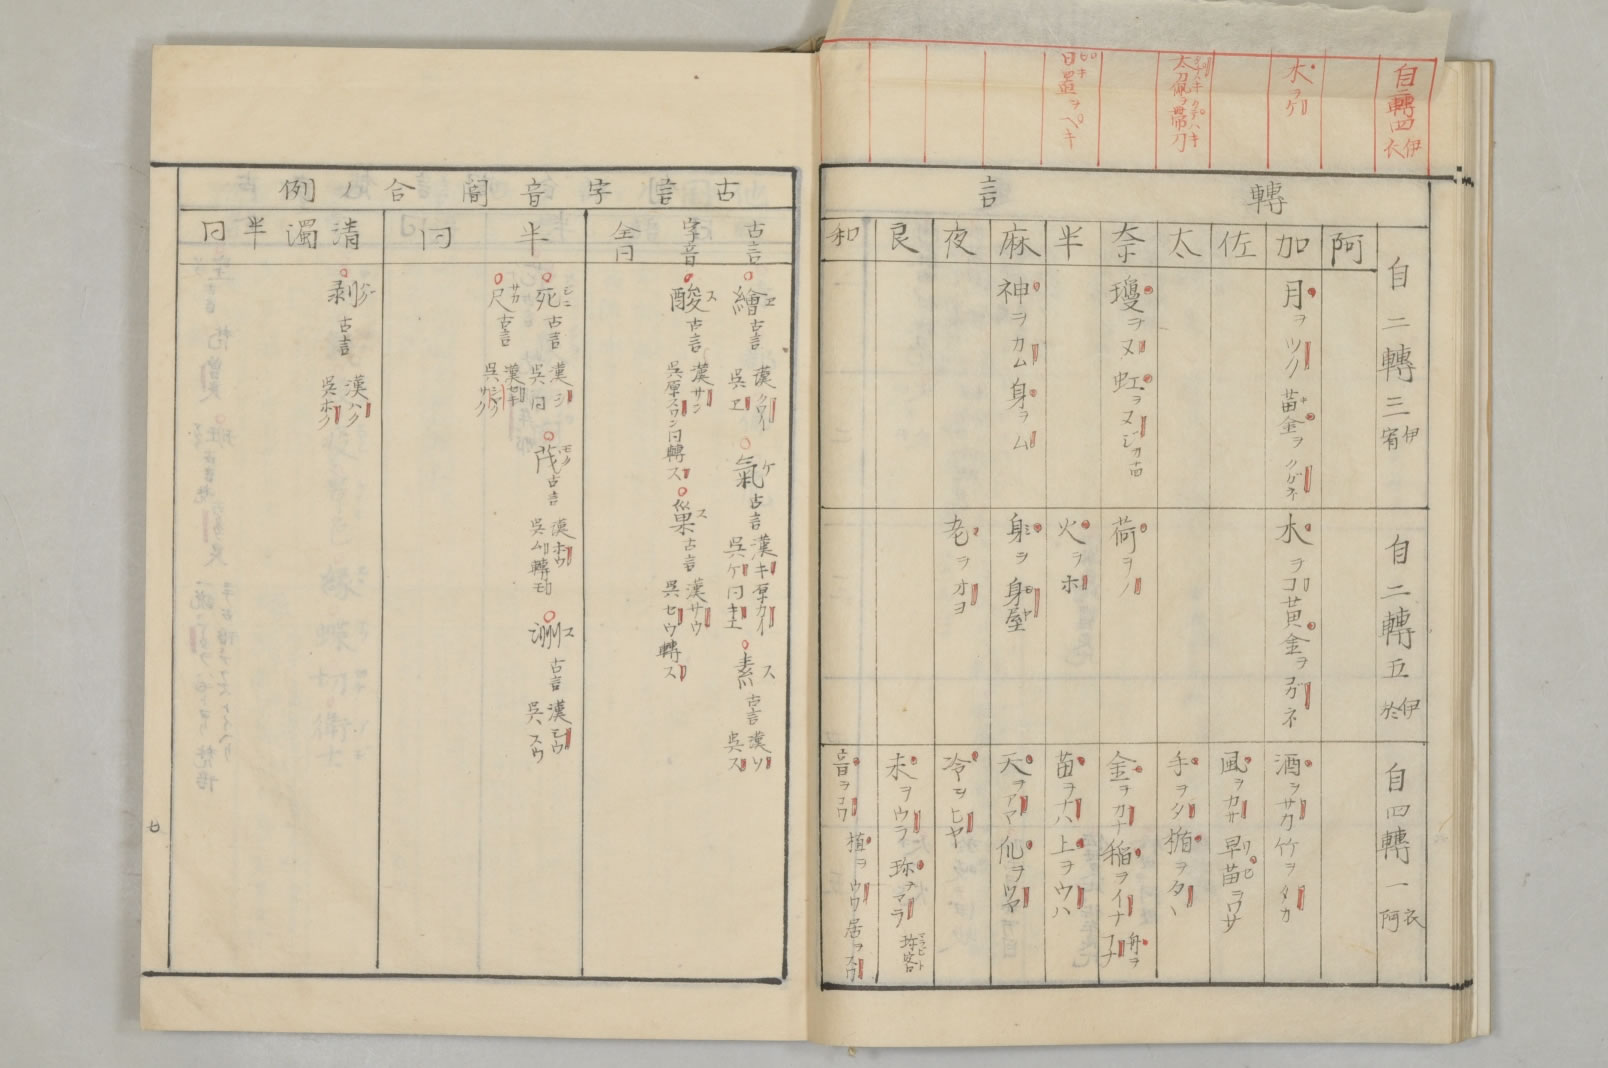 自二轉四 伊衣
木ヲケ
太刀佩ヲ帶刀
日置ヲヘキ
轉言
阿
加
佐
太
奈
半
麻
夜
良
和
自二轉三 伊宥
月ヲツク
苗金ヲクガネ
瓊ヲヌ
虹ヲヌジ
神ヲカム
身ヲム
自二轉五 伊於
木ヲコ
黄金ヲコガネ
荷ヲノ
火ヲホ
身ヲ身屋
老ヲオヨ
自四轉一 衣阿
酒ヲサカ
竹ヲタカ
風ヲカザ
早苗ヲワサ
手ヲタ
楯ヲタヽ
金ヲカナ
稲ヲイナ
舟ヲフナ
苗ヲナハ
上ヲウハ
天ヲアマ
冷ヲヒヤ
末ヲウラ
珎ヲマラ
珎客
音ヲコワ
植ヲウワ
居ヲスワ
古言字音間合ノ例
古言
字音
全同
繪ヱ 古言 漢クワイ 呉ヱ
氣ケ 古言 漢キ原カイ 呉ケ
素ス 古言 漢ソ 呉ス
酸ス 古言 漢サン 呉原スワン同轉ス
巢ス 古言 漢サウ 呉セウ轉ス
半同
死シニ 古言 漢シ 呉同
茂モク 古言 漢ホウ 呉ム轉モ
洲ス 古言 漢シウ 呉スウ
尺サカ 古言 漢セキ 呉シヤク
清濁半同
剥ハグ 古言 漢ハク 呉ホク